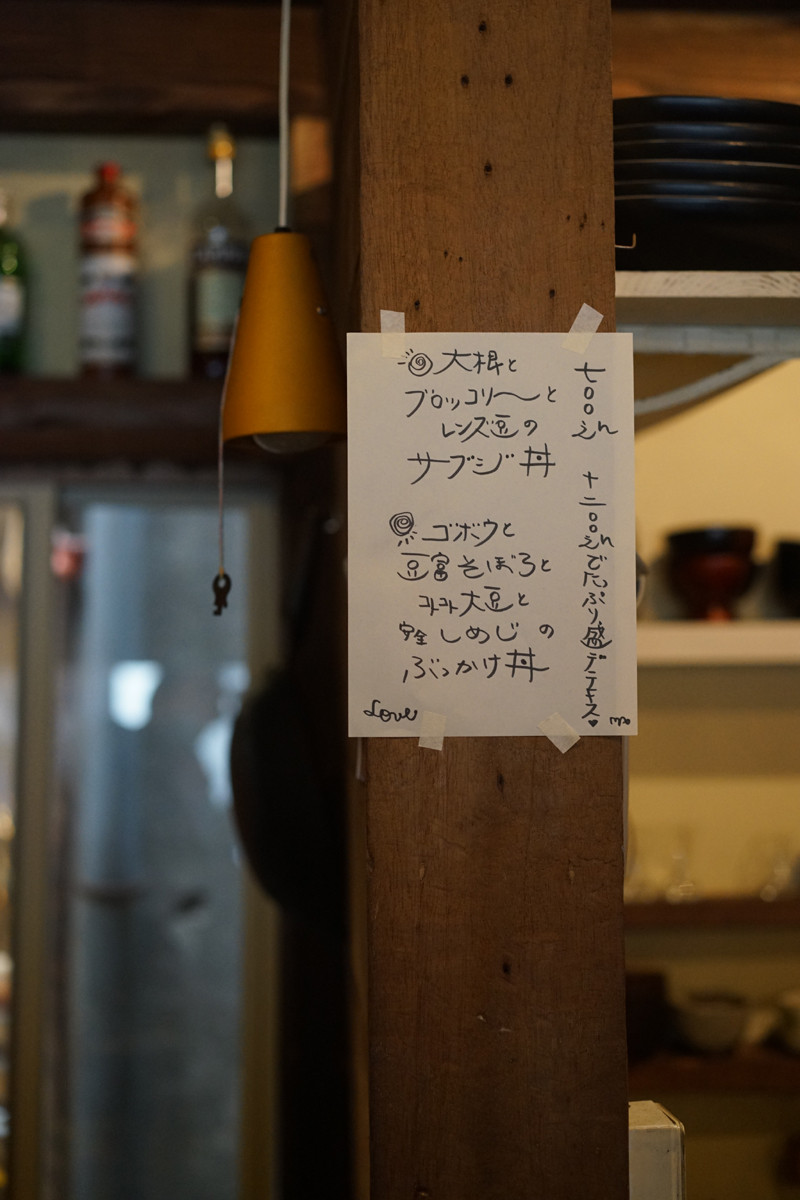 大根と
ブロッコリ〜と
レンズ豆の
サブジ丼
ゴボウと
豆富そぼろと
コトコト大豆と
しめじの
ぶっかけ丼
Love
七〇〇えん
十二〇〇えんでたっぷり盛デキマス♥